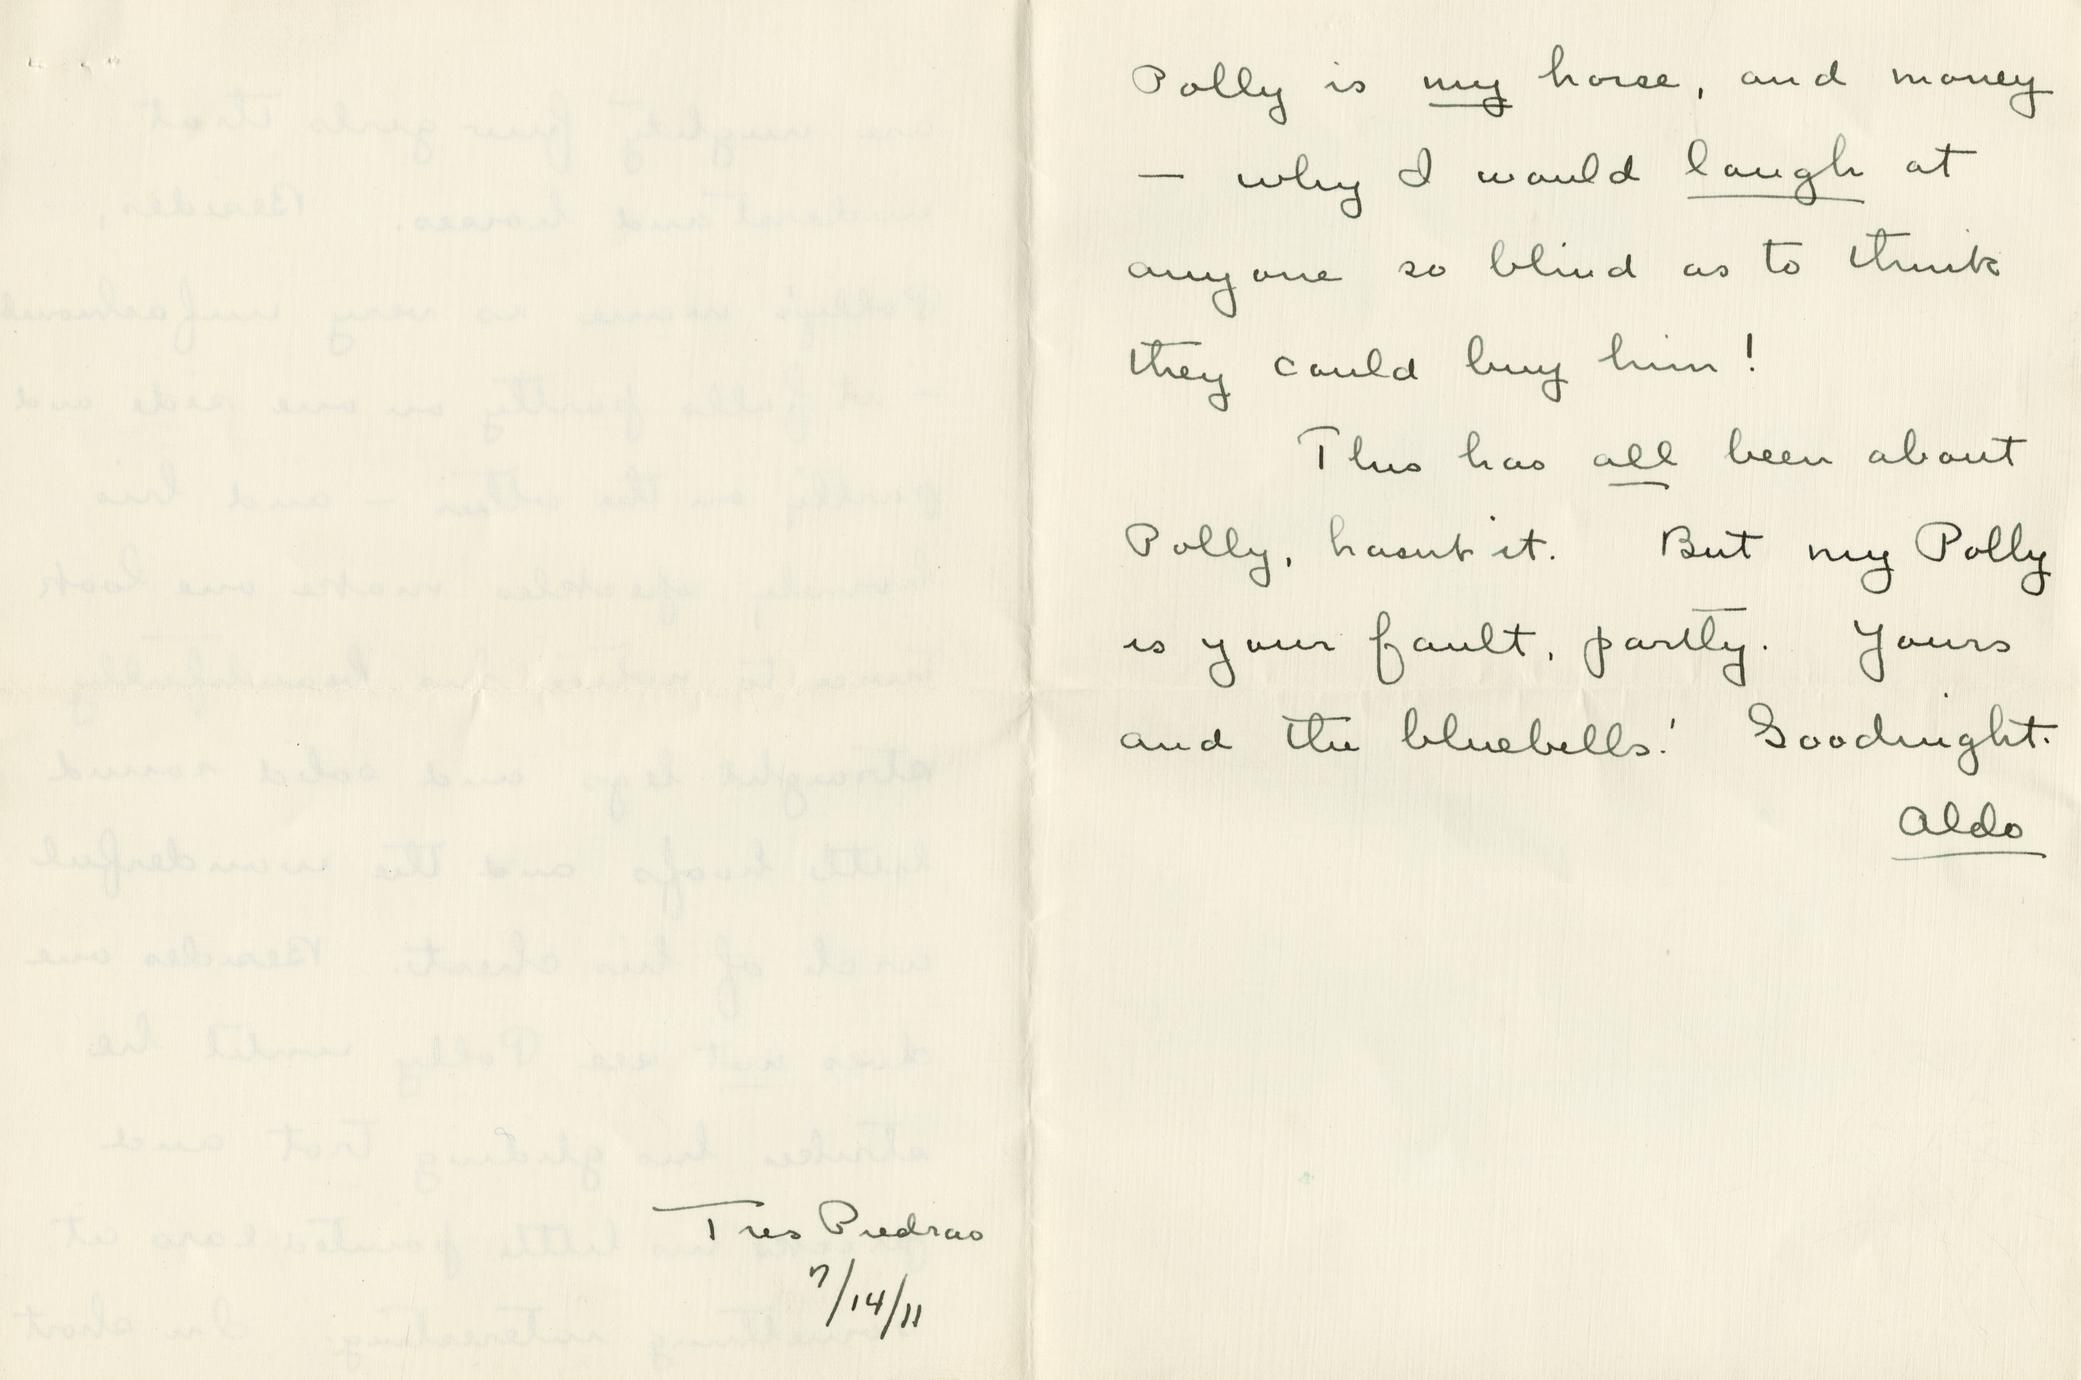 Tres Piedras
7/14/11
Polly is my horse, and money
— why I would laugh at
anyone so blind as to think
they could buy him!
This has all been about
Polly, hasn't it. But my Polly
is your fault, partly. Yours
and the bluebells! Goodnight.
Aldo